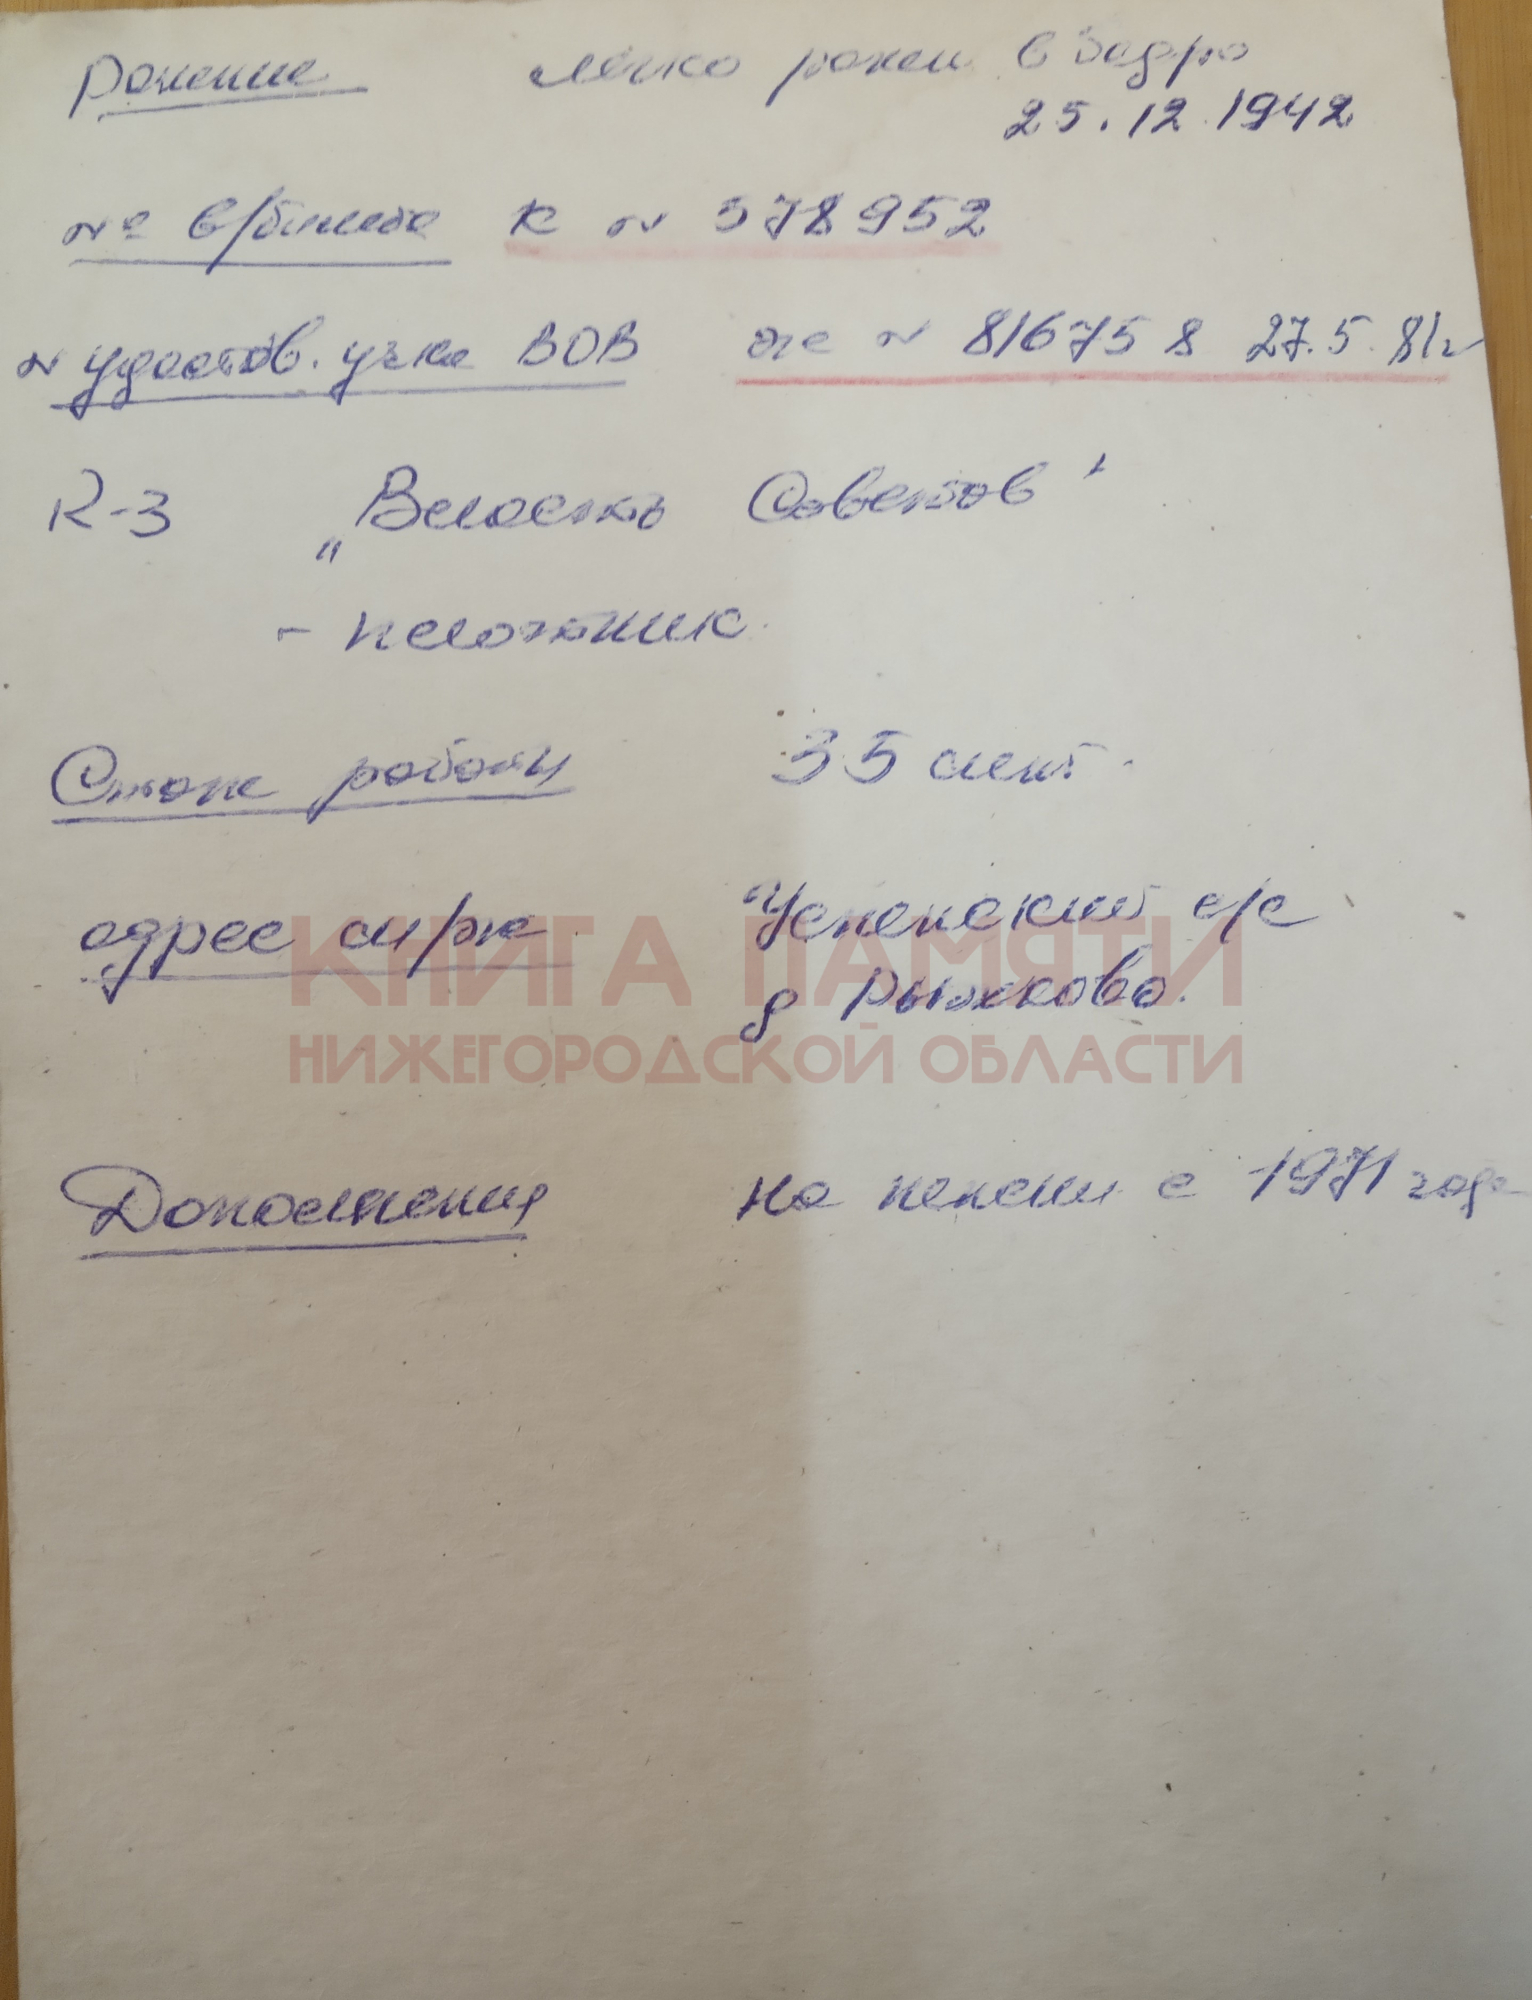 Ранение легко ранен в бедро
25.12.1942
№ в/билета К № 578952
№ удостов. уч-ка ВОВ же № 816758 27.5.81г
К-З „Власть Советов"
- плотник.
Стаж работы 35 лет.
адрес м/ж Успенский с/с
д Рыжково.
КНИГА ПАМЯТИ
НИЖЕГОРОДСКОЙ ОБЛАСТИ
Дополнения На пенсии с 1971 года